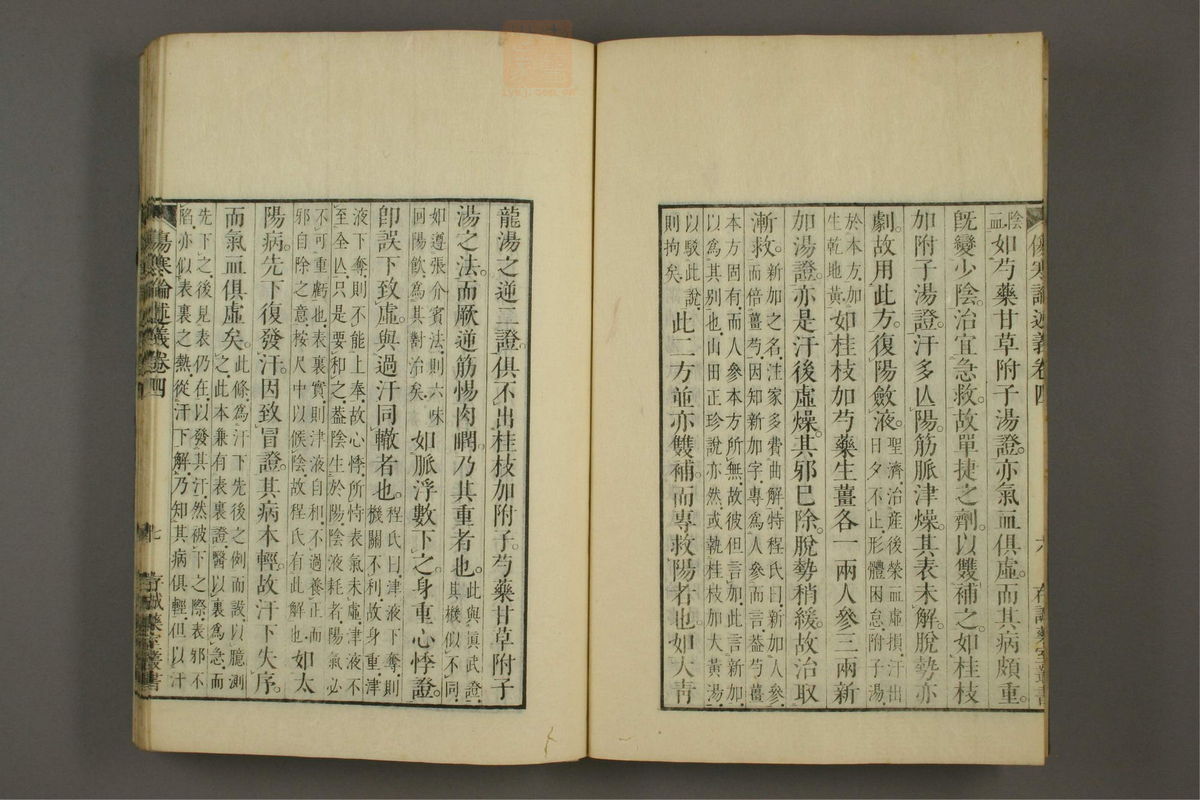 傷寒論述義卷四 六 存誠藥室叢書
陰
血如芍藥甘草附子湯證亦氣血俱虛而其病頗重
旣變少陰治宜急救故單捷之劑以雙補之如桂枝
加附子湯證汗多亾陽筋脈津燥其表未解脫勢亦
劇故用此方復陽斂液聖濟治產後榮血虛損汗出
日夕不止形體困怠附子湯
於本方加
生乾地黃如桂枝加芍藥生薑各一兩人參三兩新
加湯證亦是汗後虛燥其邪已除脫勢稍緩故治取
漸救新加之名注家多費曲解特程氏曰新加人參
而倍薑芍因知新加字專爲人參而言葢芍薑
本方固有而人參本方所無故彼但言加此言新加
以爲其別也山田正珍說亦然或執桂枝加大黃湯
以駁此說
則拘矣此二方並亦雙補而專救陽者也如大靑
龍湯之逆二證俱不出桂枝加附子芍藥甘草附子
湯之法而厥逆筋惕肉瞤乃其重者也此與眞武證
其機似不同
如遵張介賓法則六味
回陽飮爲其對治矣如脈浮數下之身重心悸證
卽誤下致虛與過汗同轍者也程氏曰津液下奪則
機關不利故身重津
液下奪則不能上奉故心悸所恃表氣未虛津液不
至全亾只是要和之葢陰生於陽陰液耗者陽氣必
不可重虧也表裏實則津液自和不過養正而
邪自除之意按尺中以候陰故程氏有此解也如太
陽病先下復發汗因致冒證其病本輕故汗下失序
而氣血俱虛矣此條爲汗下先後之例而設以臆測
之此本兼有表裏證醫以裏爲急而
先下之後見表仍在以發其汗然被下之際表邪不
陷亦似表裏之熱從汗下解乃知其病俱輕但以汗
傷寒論述義卷四 七 存誠藥室叢書